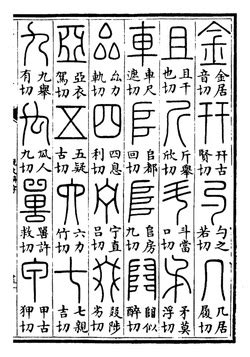 金 金居音切 幵 幵古賢切 勺 勺之若切 几 几居履切
且 且千也切 斤 斤舉欣切 斗 斗當口切 矛 矛莫浮切
車 車尺遮切 𠂤 𠂤都回切 𨸏 𨸏房九切 𨺅 𨺅似醉切
厽 厽力軌切 四 四息利切 宁 宁直呂切 叕 叕陟劣切
亞 亞衣駕切 五 五疑古切 六 六力竹切 七 七親吉切
九 九舉有切 禸 禸人九切 嘼 嘼許救切 甲 甲古狎切